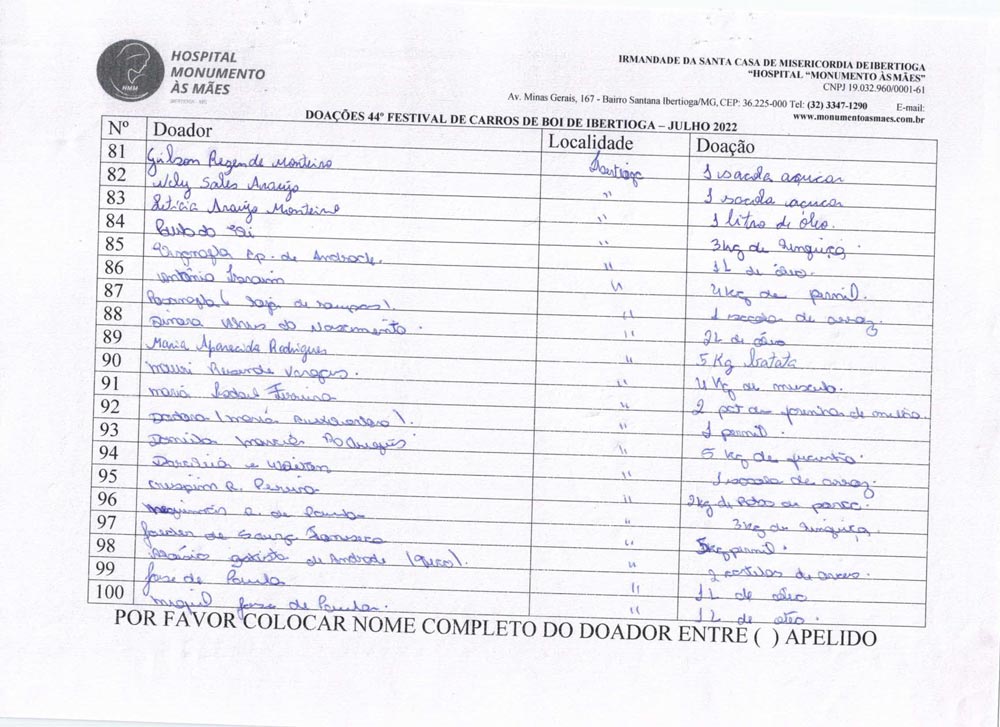 HOSPITAL
MONUMENTO
ÀS MÃES
HMM
IBERTIOGA - MG
IRMANDADE DA SANTA CASA DE MISERICORDIA DE IBERTIOGA
“HOSPITAL “MONUMENTO ÀS MÃES”
CNPJ 19.032.960/0001-61
Av. Minas Gerais, 167 - Bairro Santana Ibertioga/MG, CEP: 36.225-000 Tel: (32) 3347-1290 E-mail:
www.monumentoasmaes.com.br
DOAÇÕES 44º FESTIVAL DE CARROS DE BOI DE IBERTIOGA – JULHO 2022
Nº Doador Localidade Doação
81 Gilson Rezende Monteiro Ibertioga 1 sacola açucar
82 Nely Sales Araujo " 1 sacola acucar
83 Leticia Araujo Monteiro " 1 litro de óleo.
84 " 3kg de linguiça.
85 Ap. de Andrade. " 1L de óleo.
86 Antônio " 4kg de pernil.
87 " 1 sacola de arroz.
88 do Nascimento. " 2L de óleo
89 Maria Aparecida Rodrigues " 5 Kg batata
90 Mauri Resende Vargas. " 4 Kg de musculo.
91 Maria Ferreira " 2 pct de de milho.
92 (Maria Auxiliadora). " 1 pernil.
93 Rodrigues " 5 kg de
94 e " 1 sacola de arroz.
95 Crispim R. Pereira " 2kg de de porco.
96 R. de Paula " 3kg de linguiça.
97 de Souza Fonseca " 5kg pernil.
98 de Andrade " 2 de
99 Jose de Paula " 1L de óleo
100 Miguel Jose de Paula. " 1L de óleo.
POR FAVOR COLOCAR NOME COMPLETO DO DOADOR ENTRE ( ) APELIDO